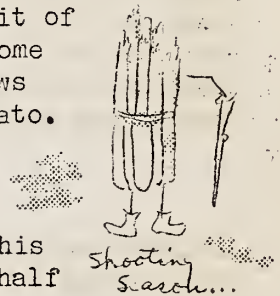 it of
ome
ws
ato.
his
half
Shooting
Season...